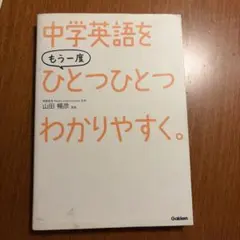 中学英語を
もう一度
ひとつひとつ
わかりやすく。
山田 暢彦
Gakken